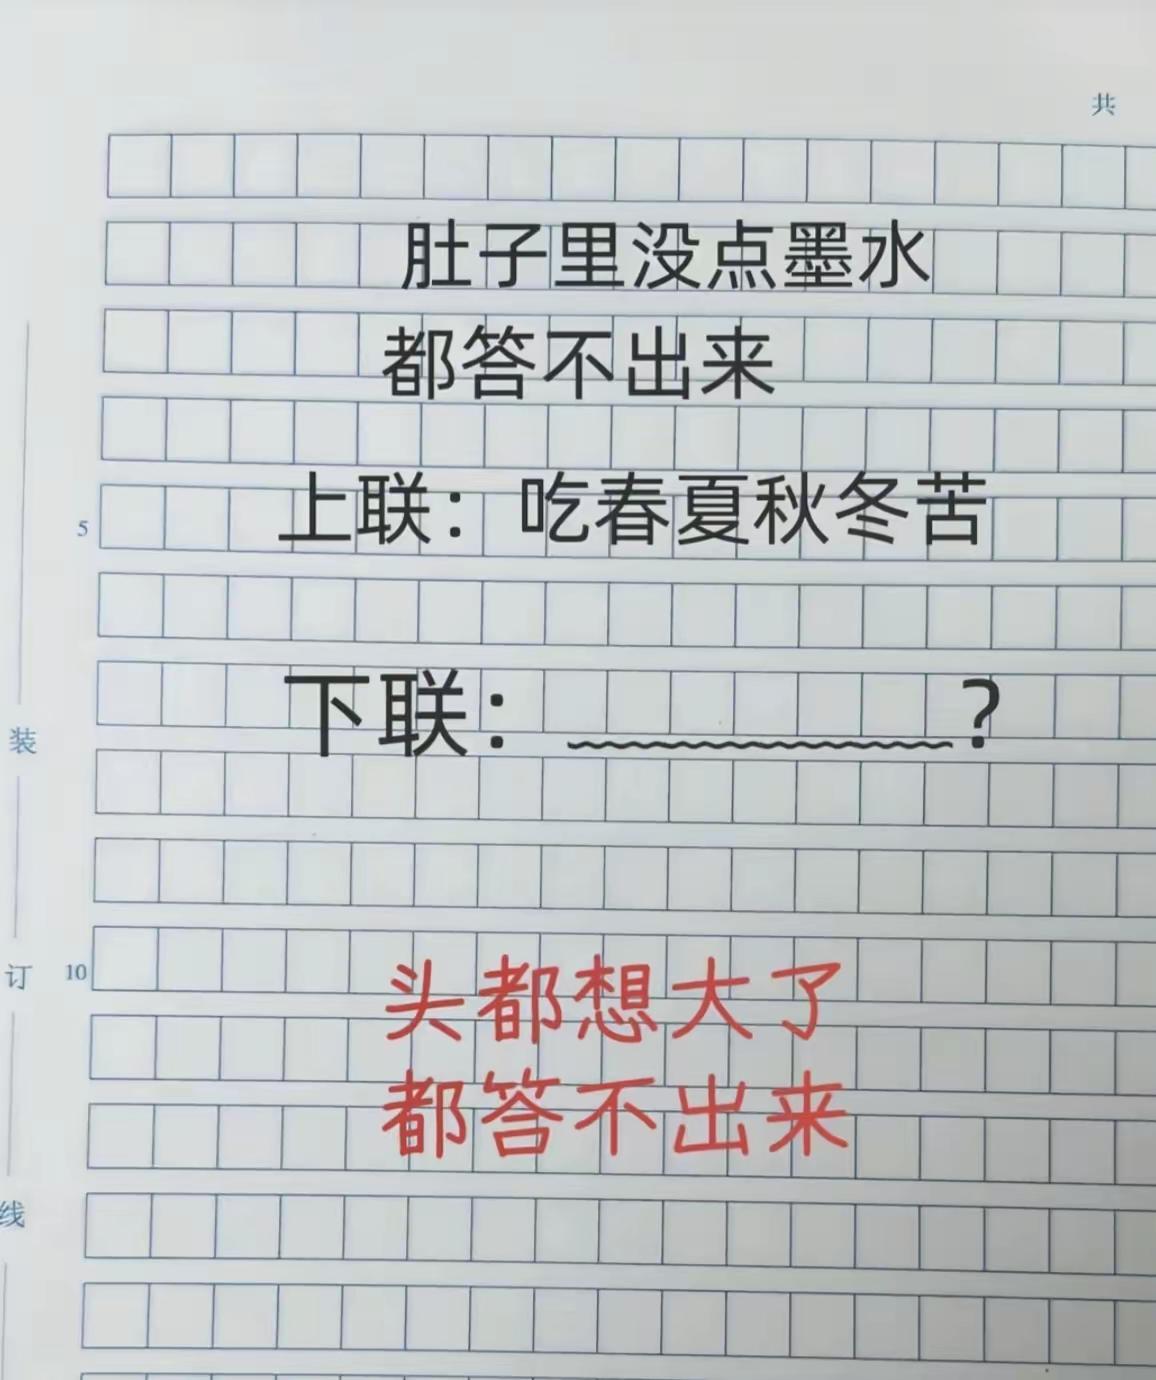 共
肚子里没点墨水
都答不出来
上联：吃春夏秋冬苦
5
下联：﹏﹏﹏﹏﹏﹏？
装
订
10
头都想大了
都答不出来
线